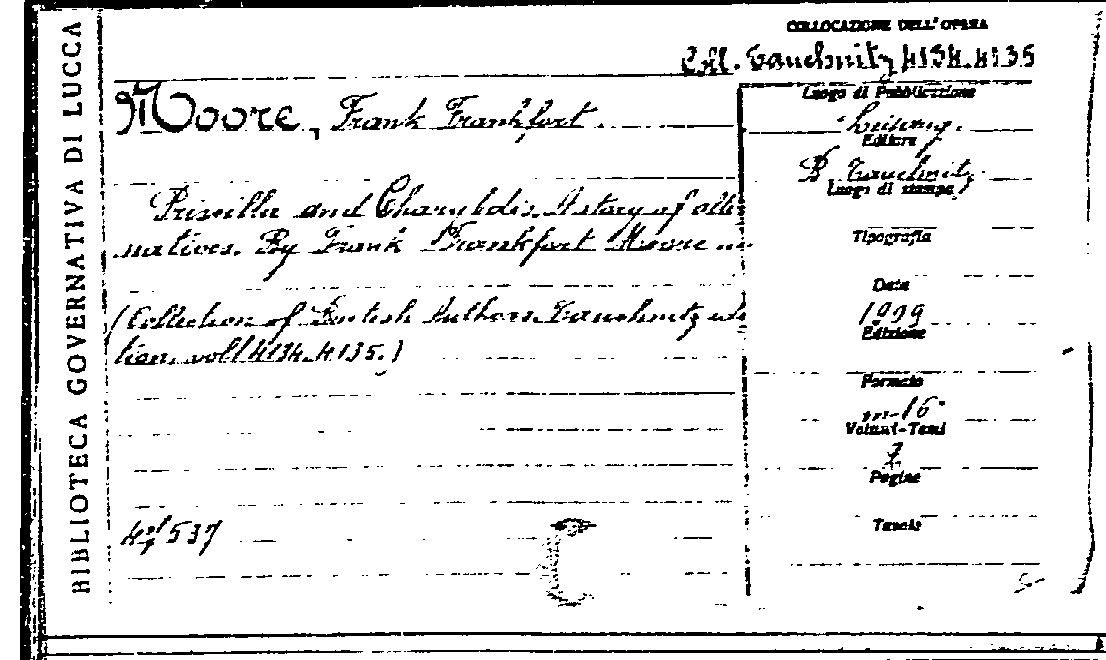 BIBLIOTECA GOVERNATIVA DI LUCCA
COLLOCAZIONE DELL'OPERA
Coll. Tauchnitz 4134.4135
Moore, Frank Frankfort.
Priscilla and Charybdis. A story of alter
natives. By Frank Frankfort Moore
(Collection of British Authors Tauchnitz edi
tion voll 4134.4135.)
537
Luogo di Pubblicazione
Leipzig.
Editore
B. Tauchnitz
Luogo di stampa
Tipografia
Data
1909
Edizione
Formato
in-16°
Volumi-Tomi
2
Pagine
Tavole